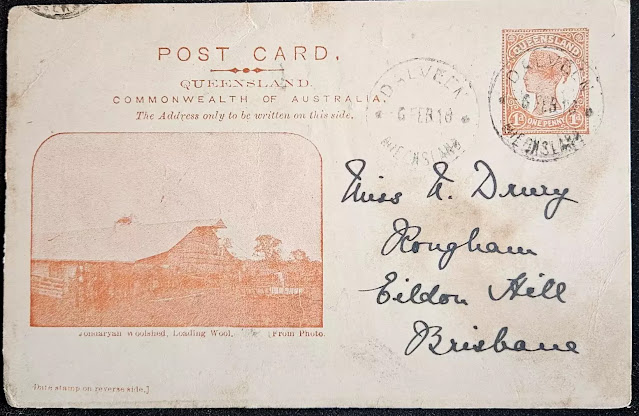 POST CARD.
QUEENSLAND.
COMMONWEALTH OF AUSTRALIA.
The Address only to be written on this side.
DALVEEN
6 FE 10
QUEENSLAND
QUEENSLAND
1D ONE PENNY 1D
DALVEEN
6 FE
QUEENSLAND
Miss N. Drury
Rongham
Eildon Hill
Brisbane
Jondaryan Woolshed, Loading Wool. [From Photo.
Date stamp on reverse side.]